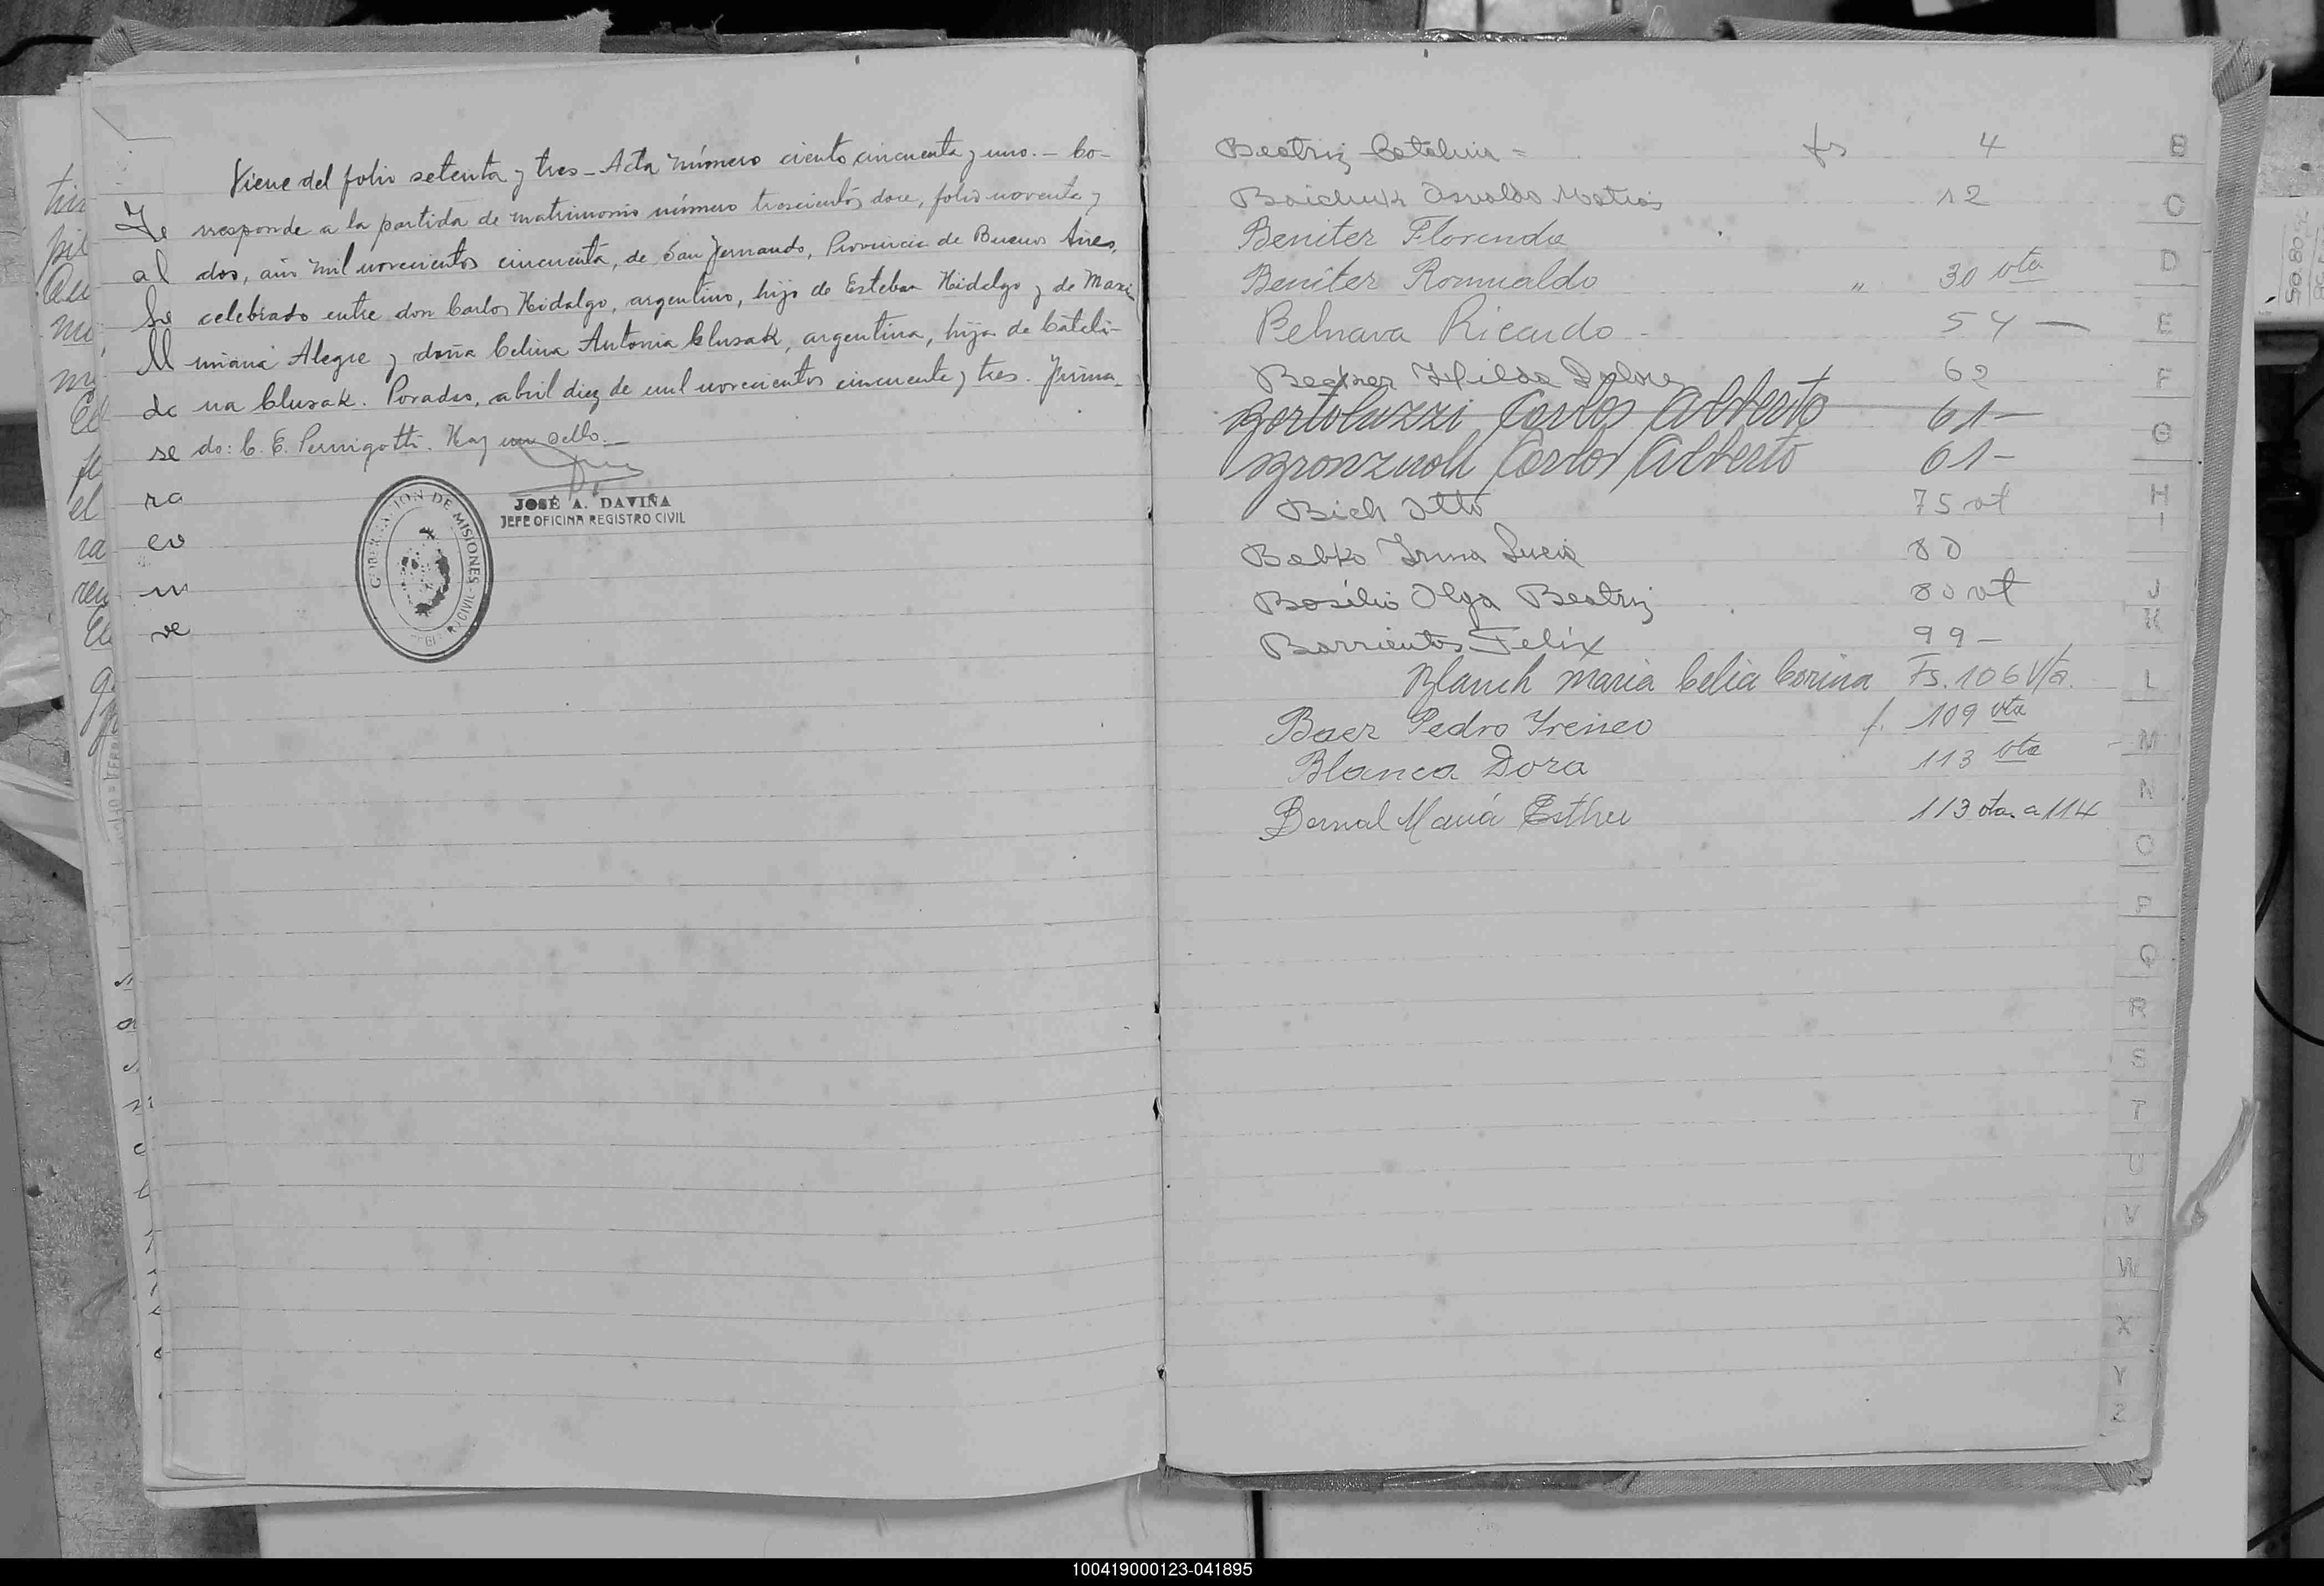 Viene del folio setenta y tres - Acta número ciento cincuenta y uno. - Co-
rresponde a la partida de matrimonio número trescientos doce, folio noventa y
dos, año mil novecientos cincuenta, de San Fernando, Provincia de Buenos Aires,
celebrado entre don Carlos Hidalgo, argentino, hijo de Esteban Hidalgo y de Maxi-
miana Alegre y doña Celina Antonia Clusak, argentina, hija de Catali-
na Clusak. Posadas, abril diez de mil novecientos cincuenta y tres. Firma-
do: C. E. Pernigotti. Hay un sello.-
al
se
ra
ve
JOSÉ A. DAVIÑA
JEFE OFICINA REGISTRO CIVIL
GOBERNACION DE MISIONES - REGISTRO CIVIL
Beatriz Catalina - fs 4
Baichuk Osvaldo Matias 12
Beniter Florinda
Beniter Romualdo " 30 vta
Belnava Ricardo - 54 —
Hilda Dolores 62
Bortoluzzi Carlos Alberto 61 -
Carlos Alberto 61 -
Bich Otto 75 vt
Babko Irma Lucia 80
Basilio Olga Beatriz 80 vt
Barrientos Felix 99 -
Blanch Maria Celia Corina Fs. 106 Vta.
Baez Pedro Ireneo f. 109 vta
Blanca Dora 113 vta
Bernal María Esther 113 vta. a 114
B
C
D
E
F
G
H
I
J
K
L
M
N
O
P
Q
R
S
T
U
V
W
X
Y
Z
100419000123-041895